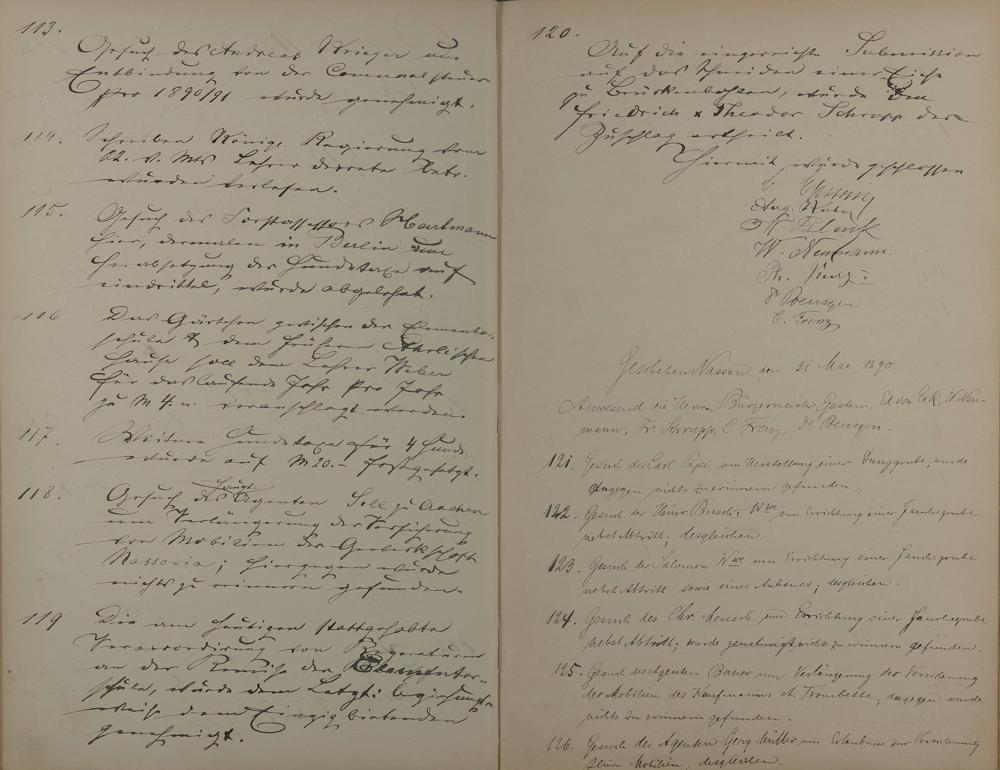 113.
Gesuch des Andreas Krieger um
Entbindung von der Communalsteuer
pro 1890/91 wurde genehmigt.
114. Schreiben Königl. Regierung vom
22. v. Mts Lehrer betr.
wurden verlesen.
115. Gesuch des Forstassessors Hartmann
hier, dermalen in Berlin um
Herabsetzung der Hundetaxe auf
eindrittel, wurde abgelehnt.
116 Das Gärtchen zwischen der Elementar-
schule & dem früheren
Hause soll dem Lehrer Weber
für das laufende Jahr pro Jahr
zu M 4.- veranschlagt werden.
117. Weitere Hundetaxe für 4 Hunde
wurde auf M 20.- festgesetzt.
118. Gesuch des Haupt Agenten Soll zu Aachen
um Verlängerung der Versicherung
von Mobilien der Gewerkschaft
Nassovia; hiergegen wurde
nichts zu erinnern gefunden.
119 Die am heutigen stattgehabte
Veraccordirung von Reparaturen
an der Remise der Elementar-
schule, wurde dem Letzt: beziehungs-
weise dem Einzigbietenden
genehmigt.
120.
Auf die eingereichte Submission
auf das Schneiden einer Eiche
zu Brückenbohlen, wurde den
Friedrich & Theodor Schrupp der
Zuschlag ertheilt.
Hiermit wurde geschlossen
Aug. Kuhn
W. Neumann.
Ph.
C. Frenz
Geschehen Nassau den 31 Mai 1890.
Anwesend die Herren Bürgermeister Ed von Eck, W. Neu-
mann, Fr. C. Frenz,
121. Gesuch des Carl Pape um Herstellung einer Dunggrube, wurde
dagegen nichts zu erinnern gefunden.
122. Gesuch der Heinr. Wwe um Errichtung einer Jauchegrube
nebst Abtritt, desgleichen.
123. Gesuch der Salomon Wwe um Errichtung einer Jauchegrube
nebst Abtritt sowie eines Anbaues; desgleichen.
124. Gesuch des Chr. um Errichtung einer Jauchegrube
nebst Abtritt; wurde genehmigt nichts zu erinnern gefunden.
125. Gesuch des Agenten Bauer um Verlängerung der Versicherung
der Mobilien des Kaufmanns A. Trombetta, dagegen wurde
nichts zu erinnern gefunden.
126. Gesuch des Agenten Georg Müller um Erlaubnis zur Versicherung
seiner Mobilien. desgleichen.